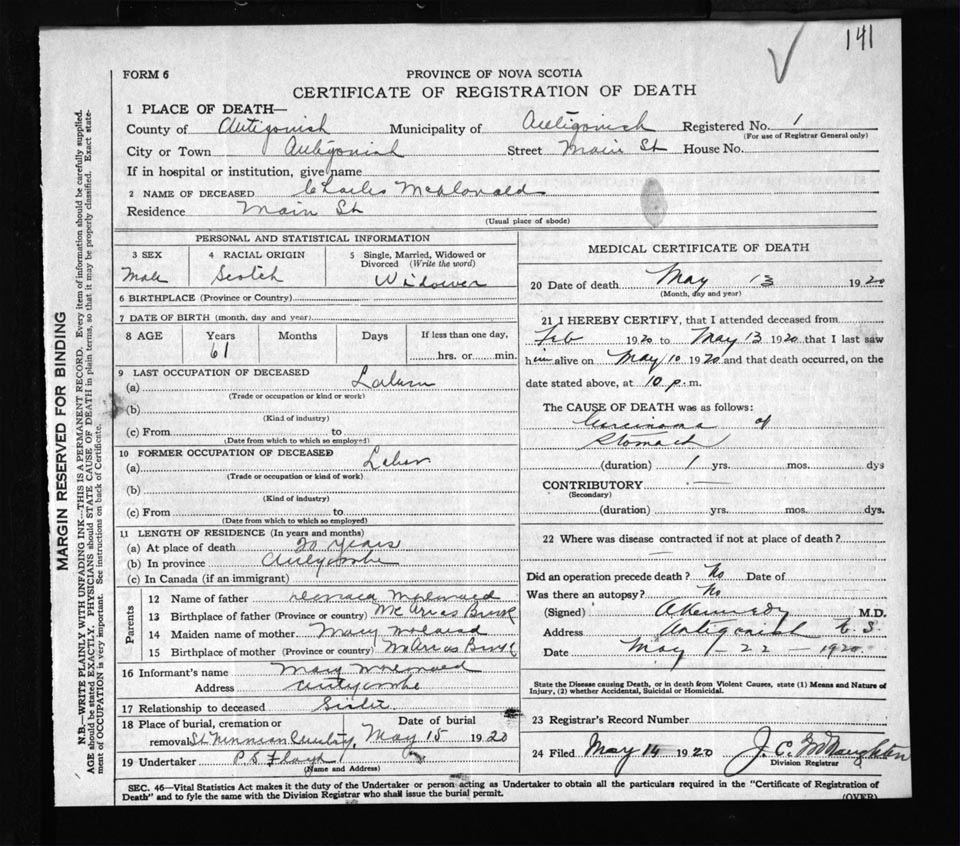 141
FORM 6
PROVINCE OF NOVA SCOTIA
CERTIFICATE OF REGISTRATION OF DEATH
1 PLACE OF DEATH—
County of Antigonish Municipality of Antigonish Registered No. 1
(For use of Registrar General only)
City or Town Antigonish Street Main St House No.
If in hospital or institution, give name
2 NAME OF DECEASED Charles McDonald
Residence Main St
(Usual place of abode)
MARGIN RESERVED FOR BINDING
N.B.—WRITE PLAINLY WITH UNFADING INK—THIS IS A PERMANENT RECORD. Every item of information should be carefully supplied.
AGE should be stated EXACTLY. PHYSICIANS should STATE CAUSE OF DEATH in plain terms, so that it may be properly classified. Exact state-
ment of OCCUPATION is very important. See instructions on back of Certificate.
PERSONAL AND STATISTICAL INFORMATION
3 SEX
Male
4 RACIAL ORIGIN
Scotch
5 Single, Married, Widowed or
Divorced (Write the word)
Widower
6 BIRTHPLACE (Province or Country)
7 DATE OF BIRTH (month, day and year)
8 AGE Years Months Days If less than one day,
61 hrs. or min.
9 LAST OCCUPATION OF DECEASED
(a)
(Trade or occupation or kind of work)
(b)
(Kind of industry)
(c) From to
(Date from which to which so employed)
10 FORMER OCCUPATION OF DECEASED
(a) Labor
(Trade or occupation or kind of work)
(b)
(Kind of industry)
(c) From to
(Date from which to which so employed)
11 LENGTH OF RESIDENCE (In years and months)
(a) At place of death 20 years
(b) In province
(c) In Canada (if an immigrant)
Parents
12 Name of father
13 Birthplace of father (Province or country) McAras Brook
14 Maiden name of mother Mary
15 Birthplace of mother (Province or country) McAras Brook
16 Informant's name Mary
Address
17 Relationship to deceased Sister
18 Place of burial, cremation or Date of burial
removal St Ninnian May 15 1920
19 Undertaker
(Name and Address)
MEDICAL CERTIFICATE OF DEATH
20 Date of death May 13 1920
(Month, day and year)
21 I HEREBY CERTIFY, that I attended deceased from
Feb 1920 to May 13 1920 that I last saw
him alive on May 10 1920 and that death occurred, on the
date stated above, at 10 p.m.
The CAUSE OF DEATH was as follows:
Carcinoma of
Stomach
(duration) 1 yrs. mos. dys
CONTRIBUTORY —
(Secondary)
(duration) yrs. mos. dys.
22 Where was disease contracted if not at place of death?
—
Did an operation precede death? No Date of
Was there an autopsy? No
(Signed) A Kennedy M.D.
Address Antigonish
Date May 22 — 1920
State the Disease causing Death, or in death from Violent Causes, state (1) Means and Nature of
Injury, (2) whether Accidental, Suicidal or Homicidal.
23 Registrar's Record Number
24 Filed May 14 1920
Division Registrar
SEC. 46—Vital Statistics Act makes it the duty of the Undertaker or person acting as Undertaker to obtain all the particulars required in the "Certificate of Registration of
Death" and to fyle the same with the Division Registrar who shall issue the burial permit.
(OVER)